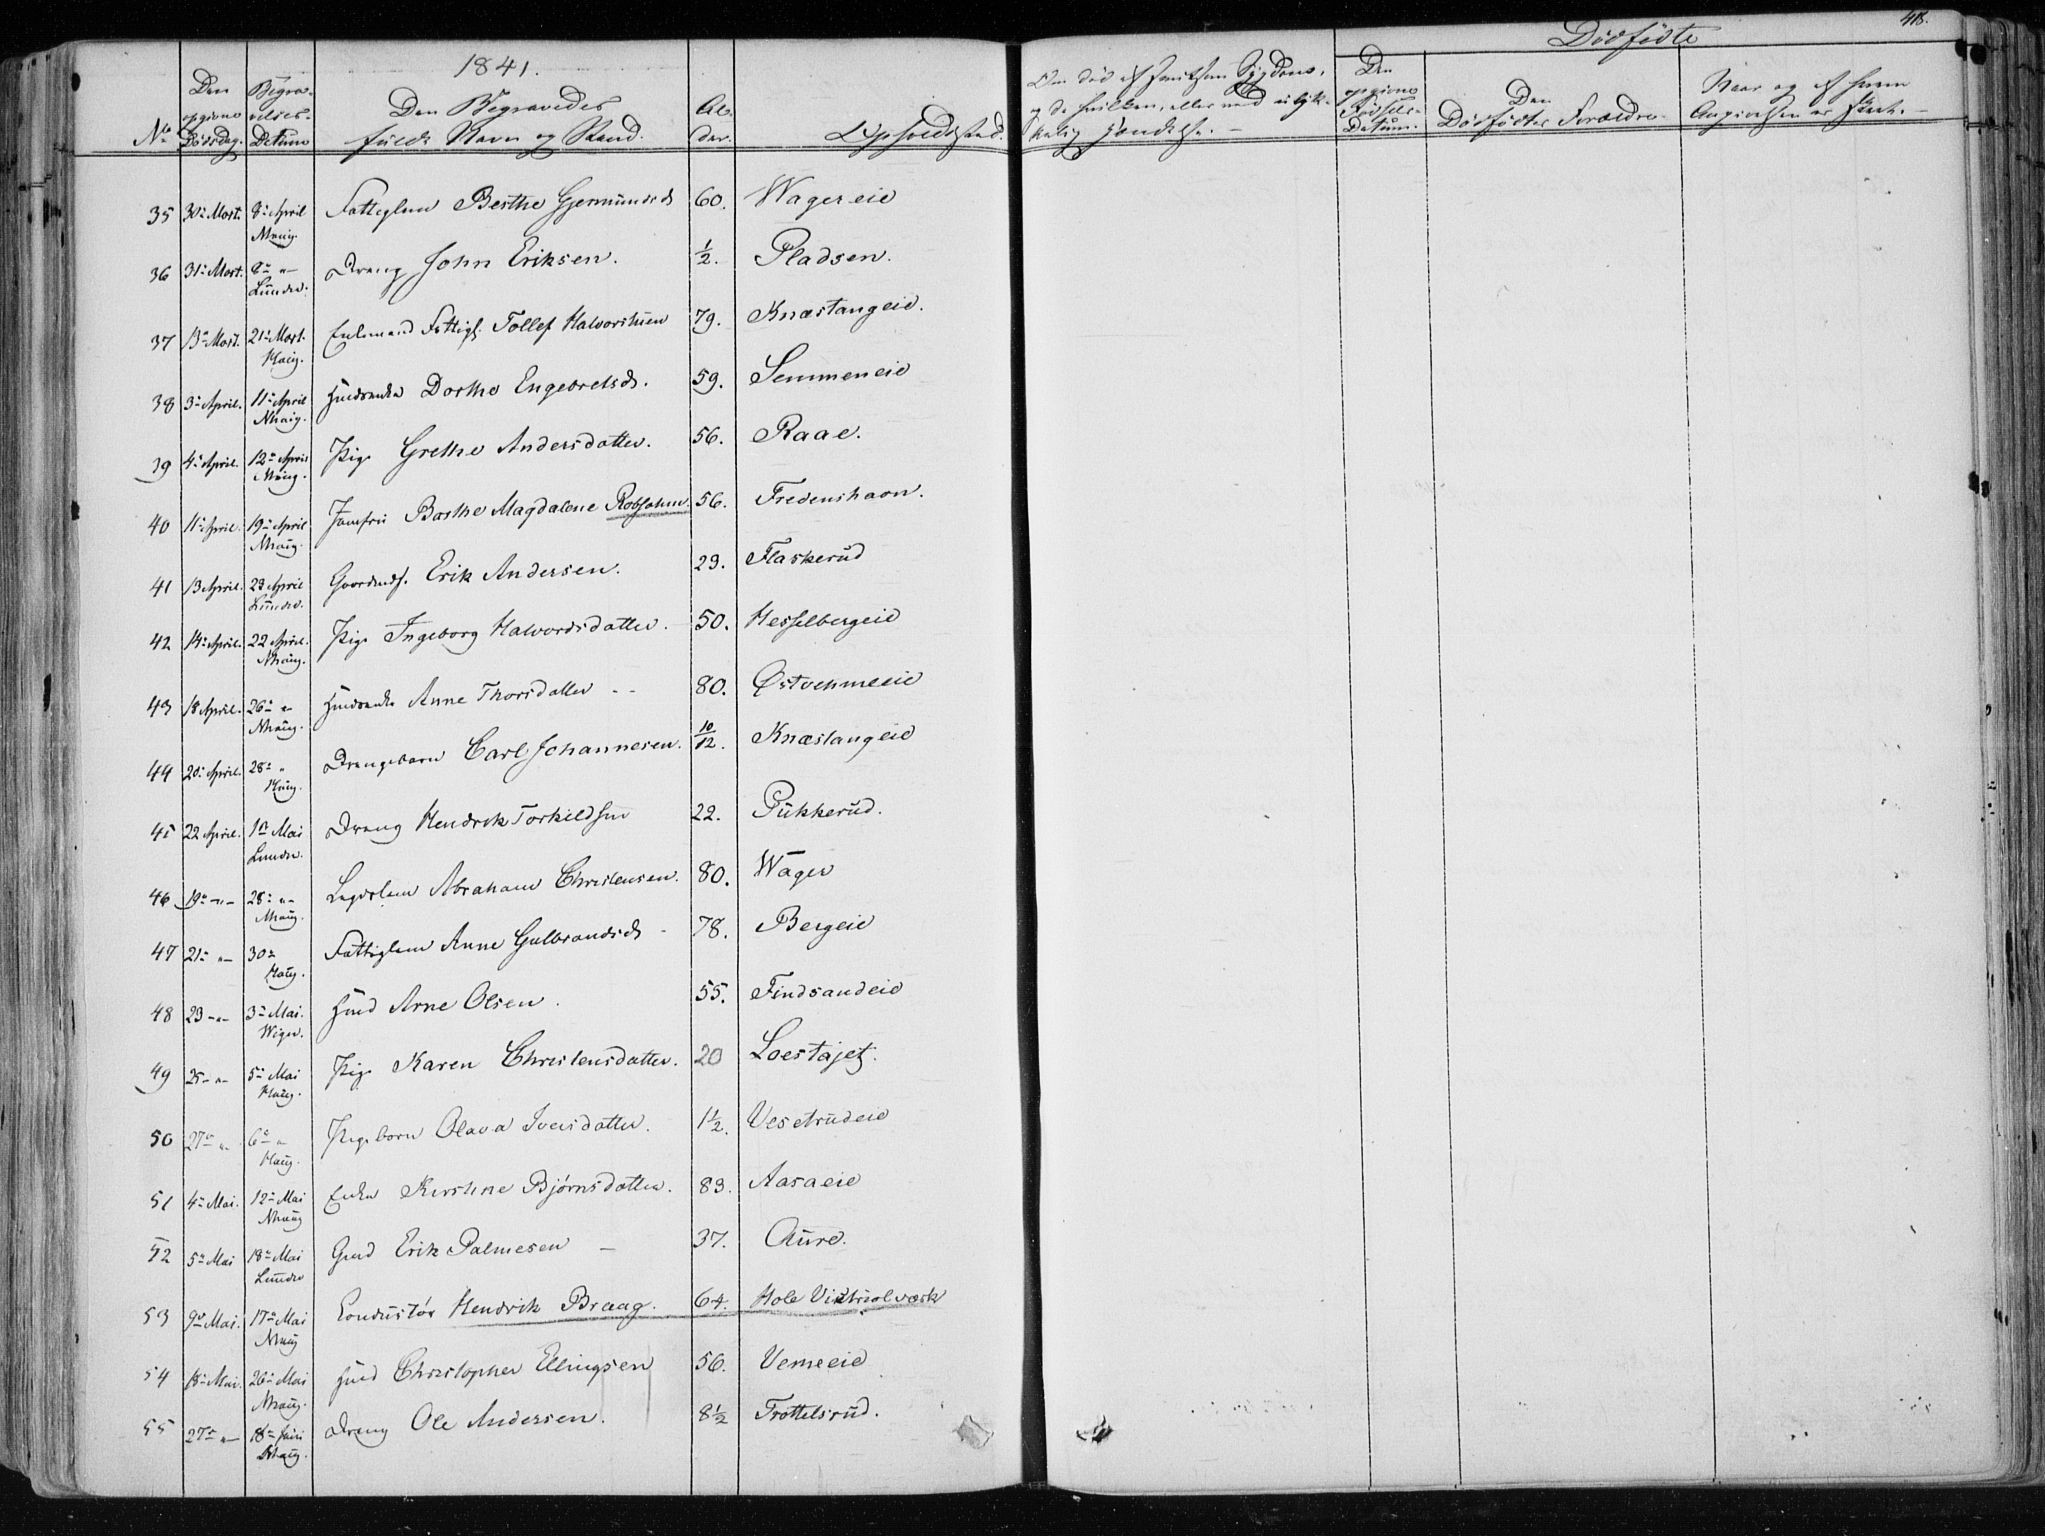 418.
1841.
Dødfødte
No
Den opgivne Dødsdag.
Begravelses-Datum
Den Begravedes fulde Navn og Stand.
Alder.
Opholdssted.
Om død af smitsom Sygdom, og da hvilken, eller ved ulykkelig Hændelse. —
Den opgivne Fødsels-Datum.
Den Dødfødtes Forældre.
Naar og af hvem Angivelsen er skeet. —
35 30te Mart. 8de April Nhaug. Fattiglem Berthe Gjermundsd 60. Wagereie
36 31te Mart. 8de " Lunder. Dreng John Eriksen. 1/2. Pladsen.
37 13de Mart. 21de Mart. Haug. Enkemand Fattigl. Tollef Halvorshuen 79. Knæstangeie.
38 3de April. 11te April Nhaug. Huusmenke Dorthe Engebretsd. 59. Semmeneie
39 4de April. 12te April Nhaug. Pige Grethe Andersdatter. 56. Raae.
40 11te April. 19de April Nhaug. Jomfru Barthe Magdalene Robsahm. 56. Fredenshavn.
41 13 April. 23 April Lunder. Gaardmds. Erik Andersen. 23. Flaskerud
42 14de April. 22 April. Nhaug. Pige Ingeborg Halvordsdatter. 50. Hesselbergeie
43 18 April. 26de " Nhaug. Anne Thorsdatter - - 80. Østvehmeeie
44 20de April. 28de " Haug. Drengebarn Carl Johannesen. 10/12. Knæstangeie
45 22 April. 1ste Mai Lunder. Dreng Hendrik Torkildsen 22. Pukkerud.
46 19de -"- 28de "- Nhaug. Lægdslem Abraham Christensen. 80. Wager
47 21de "- 30te Haug. Fattiglem Anne Gulbrandsd - 78. Bergeie
48 23 -"- 3de Mai. Wiger. Huusmd Arne Olsen. 55. Findsandeie
49 25 -"- 5te Mai Haug. Pige Karen Christensdatter. 20 Loestajet.
50 27de " 6te " Haug. Pigebarn Olava Iversdatter. 1 1/2. Vesetrudeie
51 4de Mai. 12te Mai Nhaug Enke Kirstine Bjørnsdatter. 83. Aasaeie
52 5te Mai 18de Mai Lunder Gmd Erik Palmesen — 37. Aure.
53 9de Mai. 17de Mai Nhaug Conduktør Hendrik Braag. 64. Hole Vitriolværk
54 18de Mai. 26de Mai Nhaug. Huusmd Christopher Ellingsen 56. Vemeeie
55 27de "- 18de Juni Nhaug. Dreng Ole Andersen. 8 1/2 Trøttelsrud.